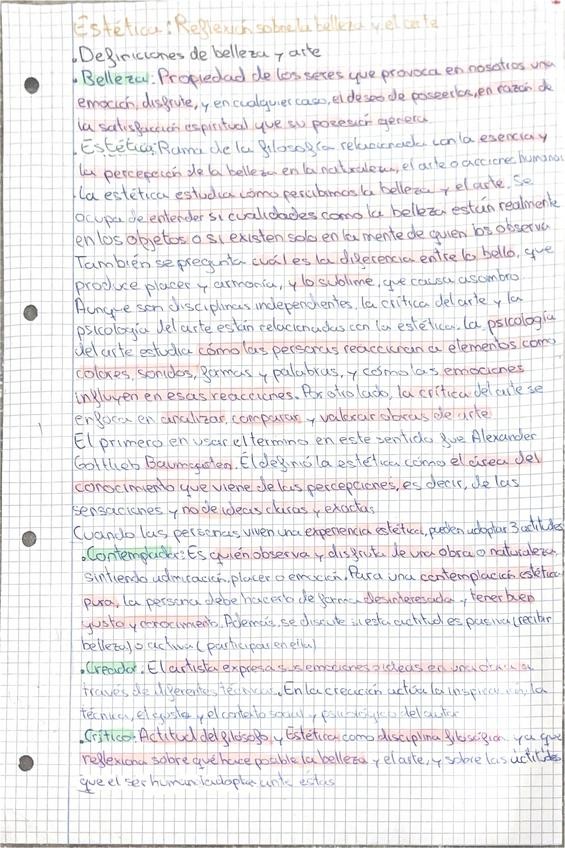 Estética: Reflexión sobre la belleza y el arte
· Definiciones de belleza y arte
· Belleza: Propiedad de los seres que provoca en nosotros una
emoción, disfrute, y en cualquier caso, el deseo de poseerlos, en razón de
la satisfacción espiritual que su posesión genera
· Estética: Rama de la filosofía relacionada con la esencia y
la percepción de la belleza en la naturaleza, el arte o acciones humanas
· La estética estudia cómo percibimos la belleza y el arte. Se
ocupa de entender si cualidades como la belleza están realmente
en los objetos o si existen solo en la mente de quien los observa
También se pregunta cuál es la diferencia entre lo bello, que
produce placer y armonía, y lo sublime, que causa asombro
Aunque son disciplinas independientes, la crítica del arte y la
psicología del arte están relacionadas con la estética. La psicología
del arte estudia cómo las personas reaccionan a elementos como
colores, sonidos, formas y palabras, y cómo las emociones
influyen en esas reacciones. Por otro lado, la crítica del arte se
enfoca en analizar, comparar y valorar obras de arte
El primero en usar el termino en este sentido fue Alexander
Gottlieb Baumgarten. Él definió la estética cómo el área del
conocimiento que viene de las percepciones, es decir, de las
sensaciones y no de ideas claras y exactas
Cuando las personas viven una experiencia estética, pueden adoptar 3 actitudes
· Contemplador: Es quién observa y disfruta de una obra o naturaleza,
sintiendo admiración, placer o emoción. Para una contemplación estética
pura, la persona debe hacerlo de forma desinteresada y tener buen
gusto y conocimiento. Además, se discute si esta actitud es pasiva (recibir
belleza) o activa (participar en ella)
· Creador: El artista expresa sus emociones o ideas en una obra a
través de diferentes técnicas. En la creación actúa la inspiración, la
técnica, el gusto y el contexto social y psicológico del autor
· Crítico: Actitud del filósofo y Estética como disciplina filosófica ya que
reflexiona sobre qué hace posible la belleza y el arte, y sobre las actitudes
que el ser humano adopta ante estas